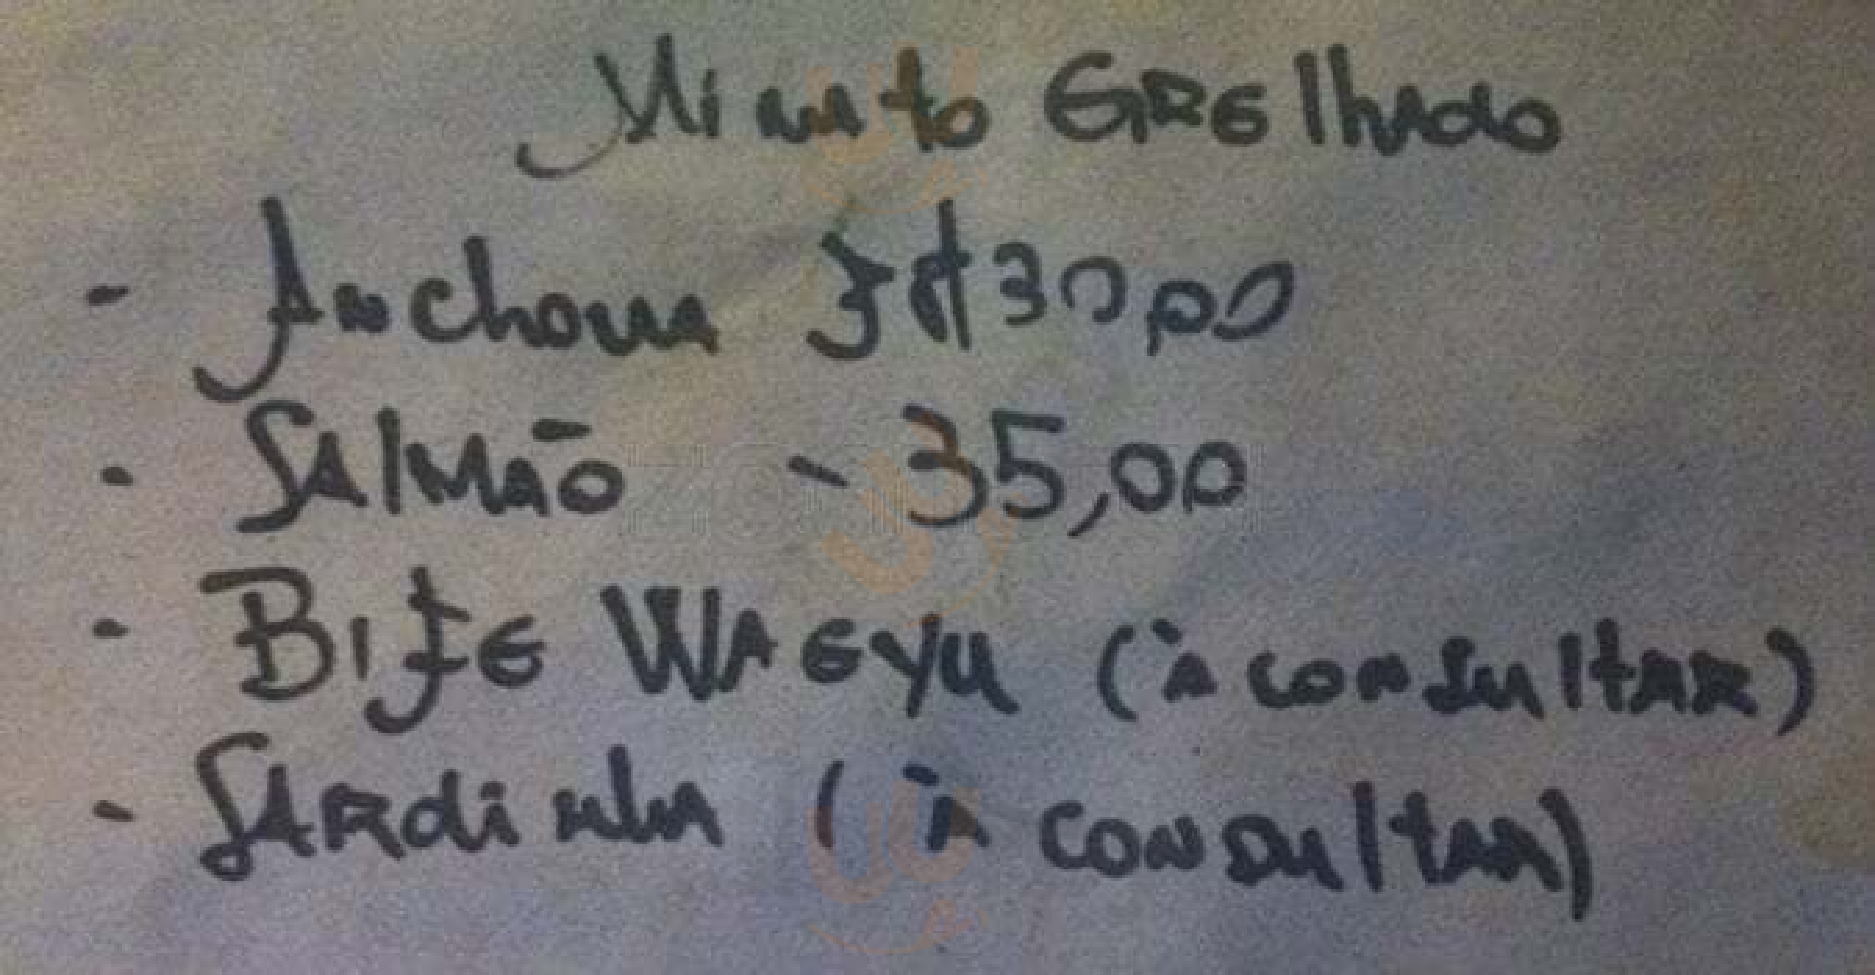 Minuto GRElhado
- Anchova R$30,00
- SAlMÃO - 35,00
- BIfE WAGYU (à CONSUltAR)
- SARdinha (à CONSUltAR)